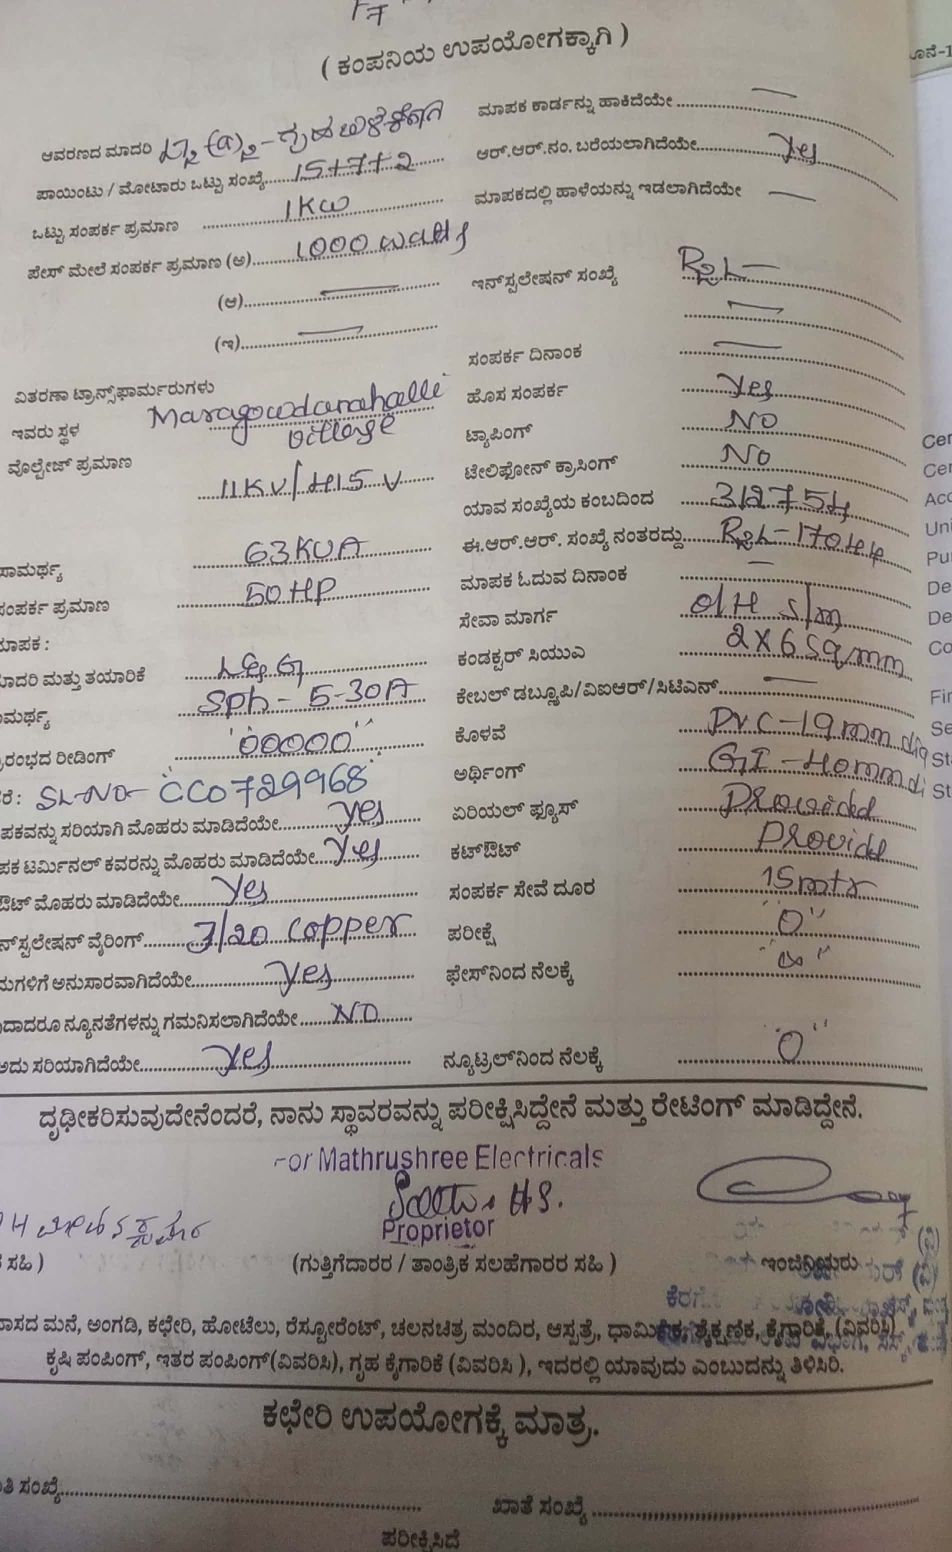 ( ಕಂಪನಿಯ ಉಪಯೋಗಕ್ಕಾಗಿ )
ಆವರಣದ ಮಾದರಿ
ಪಾಯಿಂಟು / ಮೋಟಾರು ಒಟ್ಟು ಸಂಖ್ಯೆ 15+7+2
ಒಟ್ಟು ಸಂಪರ್ಕ ಪ್ರಮಾಣ 1KW
ಪೇಸ್ ಮೇಲೆ ಸಂಪರ್ಕ ಪ್ರಮಾಣ (ಅ) 1000 watts
(ಆ)
(ಇ)
ವಿತರಣಾ ಟ್ರಾನ್ಸ್‌ಫಾರ್ಮರುಗಳು
ಇವರು ಸ್ಥಳ Maragowdanahalli
village
ವೊಲ್ಟೇಜ್ ಪ್ರಮಾಣ
11KV/415 V
ಸಾಮರ್ಥ್ಯ 63KVA
ಸಂಪರ್ಕ ಪ್ರಮಾಣ 50HP
ಮಾದರಿ ಮತ್ತು ತಯಾರಿಕೆ L&G
SPh- 5-30A
ರೀಡಿಂಗ್ "00000"
SL-NO- CC0729968
ಸರಿಯಾಗಿ ಮೊಹರು ಮಾಡಿದೆಯೇ yes
ಟರ್ಮಿನಲ್ ಕವರನ್ನು ಮೊಹರು ಮಾಡಿದೆಯೇ yes
ಮೊಹರು ಮಾಡಿದೆಯೇ yes
ವೈರಿಂಗ್ 3/20 copper
ಅನುಸಾರವಾಗಿದೆಯೇ yes
ನ್ಯೂನತೆಗಳನ್ನು ಗಮನಿಸಲಾಗಿದೆಯೇ NO
ಅದು ಸರಿಯಾಗಿದೆಯೇ yes
ಮಾಪಕ ಕಾರ್ಡನ್ನು ಹಾಕಿದೆಯೇ
ಆರ್.ಆರ್.ನಂ. ಬರೆಯಲಾಗಿದೆಯೇ yes
ಮಾಪಕದಲ್ಲಿ ಹಾಳೆಯನ್ನು ಇಡಲಾಗಿದೆಯೇ
ಇನ್‌ಸ್ಟಲೇಷನ್ ಸಂಖ್ಯೆ
ಸಂಪರ್ಕ ದಿನಾಂಕ
ಹೊಸ ಸಂಪರ್ಕ Yes
ಟ್ಯಾಪಿಂಗ್ NO
ಟೇಲಿಫೋನ್ ಕ್ರಾಸಿಂಗ್ No
ಯಾವ ಸಂಖ್ಯೆಯ ಕಂಬದಿಂದ
ಈ.ಆರ್.ಆರ್. ಸಂಖ್ಯೆ ನಂತರದ್ದು
ಮಾಪಕ ಓದುವ ದಿನಾಂಕ
ಸೇವಾ ಮಾರ್ಗ O/H S/m
ಕಂಡಕ್ಟರ್ ಸಿಯುಎ 2X6 Sqmm
ಕೇಬಲ್ ಡಬ್ಲೂಪಿ/ವಿಐಆರ್/ಸಿಟಿಎಸ್
ಕೊಳವೆ PVC-19mm dia
ಅರ್ಥಿಂಗ್ GI -40mm di
ಏರಿಯಲ್ ಫ್ಯೂಸ್ Provided
ಕಟ್‌ಔಟ್ Provide
ಸಂಪರ್ಕ ಸೇವೆ ದೂರ 15mtr
ಪರೀಕ್ಷೆ "0"
ಫೇಸ್‌ನಿಂದ ನೆಲಕ್ಕೆ
ನ್ಯೂಟ್ರಲ್‌ನಿಂದ ನೆಲಕ್ಕೆ "0"
ದೃಢೀಕರಿಸುವುದೇನೆಂದರೆ, ನಾನು ಸ್ಥಾವರವನ್ನು ಪರೀಕ್ಷಿಸಿದ್ದೇನೆ ಮತ್ತು ರೇಟಿಂಗ್ ಮಾಡಿದ್ದೇನೆ.
For Mathrushree Electricals
Proprietor
ಸಹಿ ) (ಗುತ್ತಿಗೆದಾರರ / ತಾಂತ್ರಿಕ ಸಲಹೆಗಾರರ ಸಹಿ ) ಇಂಜಿನಿಯರು
ವಾಸದ ಮನೆ, ಅಂಗಡಿ, ಕಛೇರಿ, ಹೋಟೆಲು, ರೆಸ್ಟೋರೆಂಟ್, ಚಲನಚಿತ್ರ ಮಂದಿರ, ಆಸ್ಪತ್ರೆ, ಧಾರ್ಮಿಕ, ಶೈಕ್ಷಣಿಕ, ಕೈಗಾರಿಕೆ (ವಿವರಿಸಿ)
ಕೃಷಿ ಪಂಪಿಂಗ್, ಇತರ ಪಂಪಿಂಗ್(ವಿವರಿಸಿ), ಗೃಹ ಕೈಗಾರಿಕೆ (ವಿವರಿಸಿ ), ಇದರಲ್ಲಿ ಯಾವುದು ಎಂಬುದನ್ನು ತಿಳಿಸಿರಿ.
ಕಛೇರಿ ಉಪಯೋಗಕ್ಕೆ ಮಾತ್ರ.
ಸಂಖ್ಯೆ ಖಾತೆ ಸಂಖ್ಯೆ
ಪರೀಕ್ಷಿಸಿದೆ